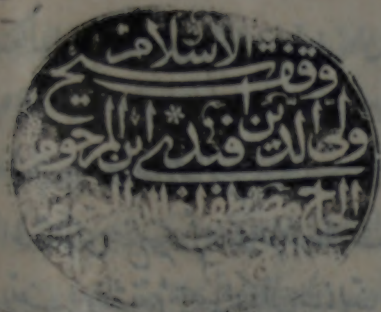 وقف شيخ الاسلام
ولى الدين افندى ابن المرحوم
الحاج مصطفى اغا ابن المرحوم